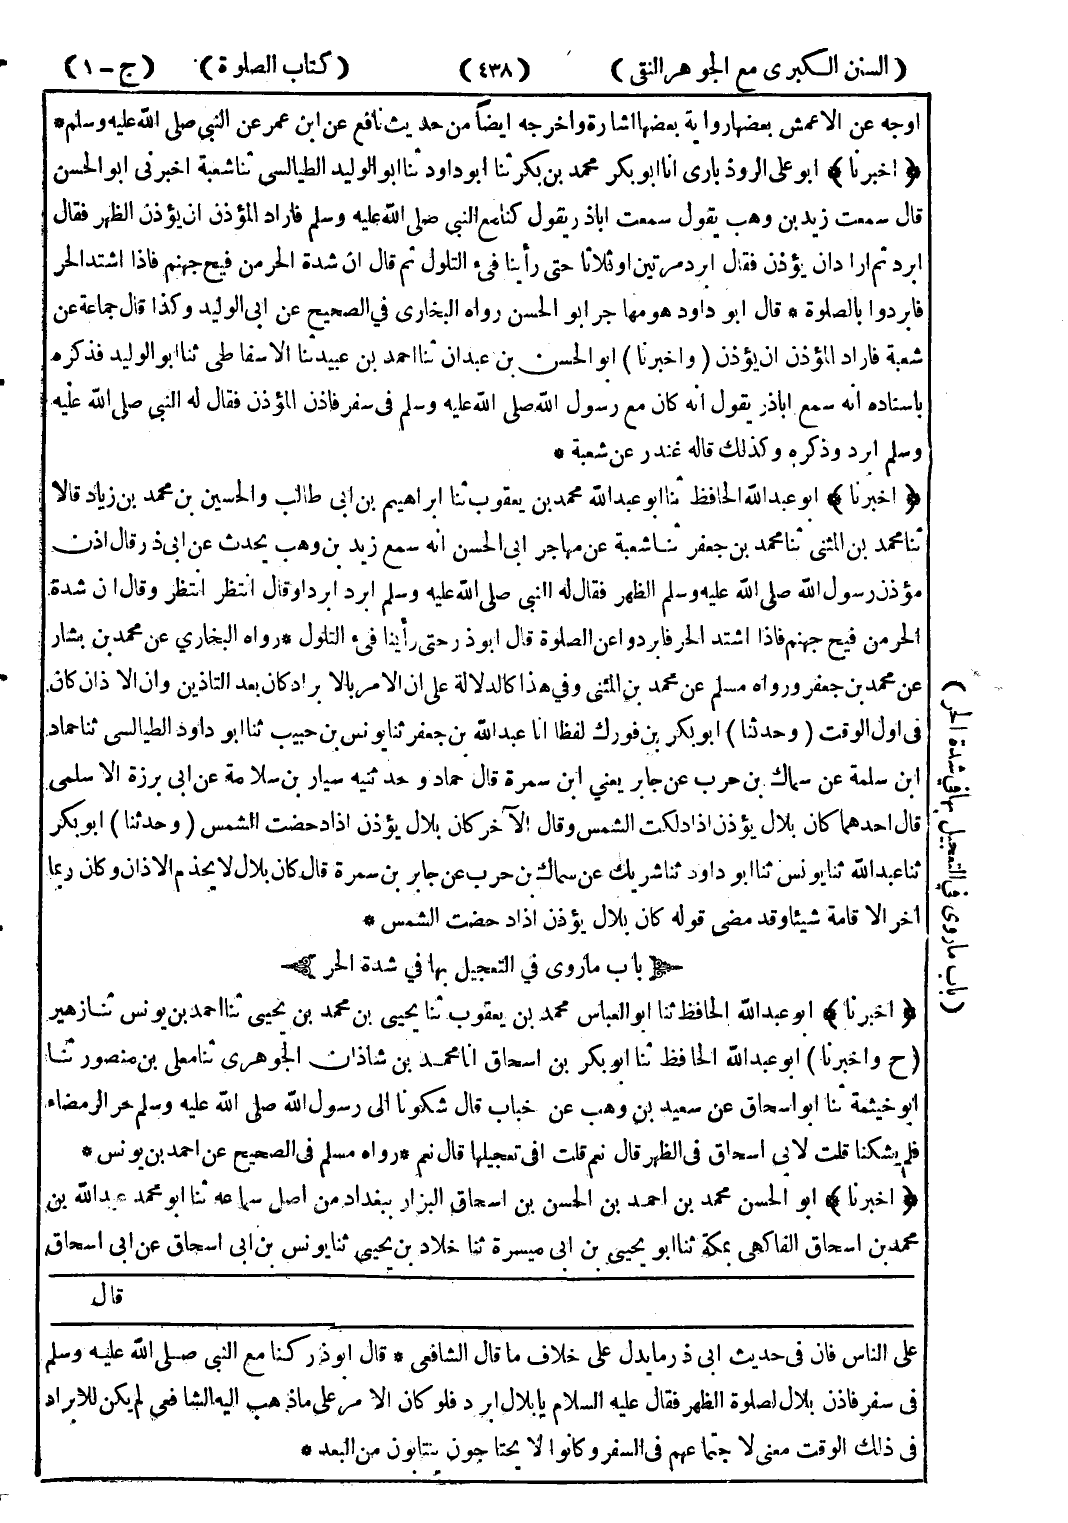 ( السنن الكبرى مع الجوهر النقى ) ( ٤٣٨ ) ( كتاب الصلوة ) ( ج - ١ )
اوجه عن الاعمش بعضها رواية بعضها اشارة واخرجه ايضاً من حديث نافع عن ابن عمر عن النبي صلى الله عليه وسلم *
﴿ اخبرنا ﴾ ابو على الروذبارى انا ابو بكر محمد بن بكر ثنا ابو داود ثنا ابو الوليد الطيالسي ثنا شعبة اخبرنى ابو الحسن
قال سمعت زيد بن وهب يقول سمعت اباذر يقول كنا مع النبي صلى الله عليه وسلم فاراد المؤذن ان يؤذن الظهر فقال
ابرد ثم اراد ان يؤذن فقال ابرد مرتين او ثلاثا حتى رأينا فىء التلول ثم قال ان شدة الحر من فيح جهنم فاذا اشتد الحر
فابردوا بالصلوة * قال ابو داود هو مهاجر ابو الحسن رواه البخارى في الصحيح عن ابى الوليد وكذا قال جماعة عن
شعبة فاراد المؤذن ان يؤذن ( واخبرنا ) ابو الحسن بن عبدان ثنا احمد بن عبيد ثنا الاسفاطى ثنا ابو الوليد فذكره
باسناده انه سمع اباذر يقول انه كان مع رسول الله صلى الله عليه وسلم فى سفر فاذن المؤذن فقال له النبي صلى الله عليه
وسلم ابرد وذكره وكذلك قاله غندر عن شعبة *
﴿ اخبرنا ﴾ ابو عبدالله الحافظ ثنا ابو عبدالله محمد بن يعقوب ثنا ابراهيم بن ابى طالب والحسين بن محمد بن زياد قالا
ثنا محمد بن المثنى ثنا محمد بن جعفر ثنا شعبة عن مهاجر ابى الحسن انه سمع زيد بن وهب يحدث عن ابى ذر قال اذن
مؤذن رسول الله صلى الله عليه وسلم الظهر فقال له النبي صلى الله عليه وسلم ابرد ابرد اوقال انتظر انتظر وقال ان شدة
الحر من فيح جهنم فاذا اشتد الحر فابردوا عن الصلوة قال ابوذر حتى رأينا فىء التلول * رواه البخاري عن محمد بن بشار
عن محمد بن جعفر ورواه مسلم عن محمد بن المثنى وفى هذا كالدلالة على ان الامر بالابراد كان بعد التاذين وان الاذان كان
فى اول الوقت ( وحدثنا ) ابو بكر بن فورك لفظا انا عبدالله بن جعفر ثنا يونس بن حبيب ثنا ابو داود الطيالسى ثنا حماد
ابن سلمة عن سماك بن حرب عن جابر يعني ابن سمرة قال حماد وحدثنيه سيار بن سلامة عن ابى برزة الاسلمى
قال احدهما كان بلال يؤذن اذا دلكت الشمس وقال الآخر كان بلال يؤذن اذا دحضت الشمس ( وحدثنا ) ابو بكر
ثنا عبدالله ثنا يونس ثنا ابو داود ثنا شريك عن سماك بن حرب عن جابر بن سمرة قال كان بلال لا يحذم الاذان وكان ربما
اخر الاقامة شيئا وقد مضى قوله كان بلال يؤذن اذا دحضت الشمس *
باب ماروى في التعجيل بها في شدة الحر
﴿ اخبرنا ﴾ ابو عبدالله الحافظ ثنا ابو العباس محمد بن يعقوب ثنا يحيى بن محمد بن يحيى ثنا احمد بن يونس ثنا زهير
( ح واخبرنا ) ابو عبدالله الحافظ ثنا ابو بكر بن اسحاق انا محمد بن شاذان الجوهرى ثنا معلى بن منصور ثنا
ابو خيثمة ثنا ابو اسحاق عن سعيد بن وهب عن خباب قال شكونا الى رسول الله صلى الله عليه وسلم حر الرمضاء
فلم يشكنا قلت لابى اسحاق فى الظهر قال نعم قلت افى تعجيلها قال نعم * رواه مسلم فى الصحيح عن احمد بن يونس *
﴿ اخبرنا ﴾ ابو الحسن محمد بن احمد بن الحسن بن اسحاق البزار ببغداد من اصل سماعه ثنا ابو محمد عبدالله بن
محمد بن اسحاق الفاكهى بمكة ثنا ابو يحيى بن ابى ميسرة ثنا خلاد بن يحيى ثنا يونس بن ابى اسحاق عن ابى اسحاق
قال
على الناس فان فى حديث ابى ذر مايدل على خلاف ما قال الشافعى * قال ابوذر كنا مع النبي صلى الله عليه وسلم
فى سفر فاذن بلال لصلوة الظهر فقال عليه السلام يا بلال ابرد فلو كان الامر على ماذهب اليه الشافعى لم يكن للابراد
فى ذلك الوقت معنى لاجتماعهم فى السفر وكانوا لا يحتاجون ينتابون من البعد *
( باب ماروى فى التعجيل بها فى شدة الحر )